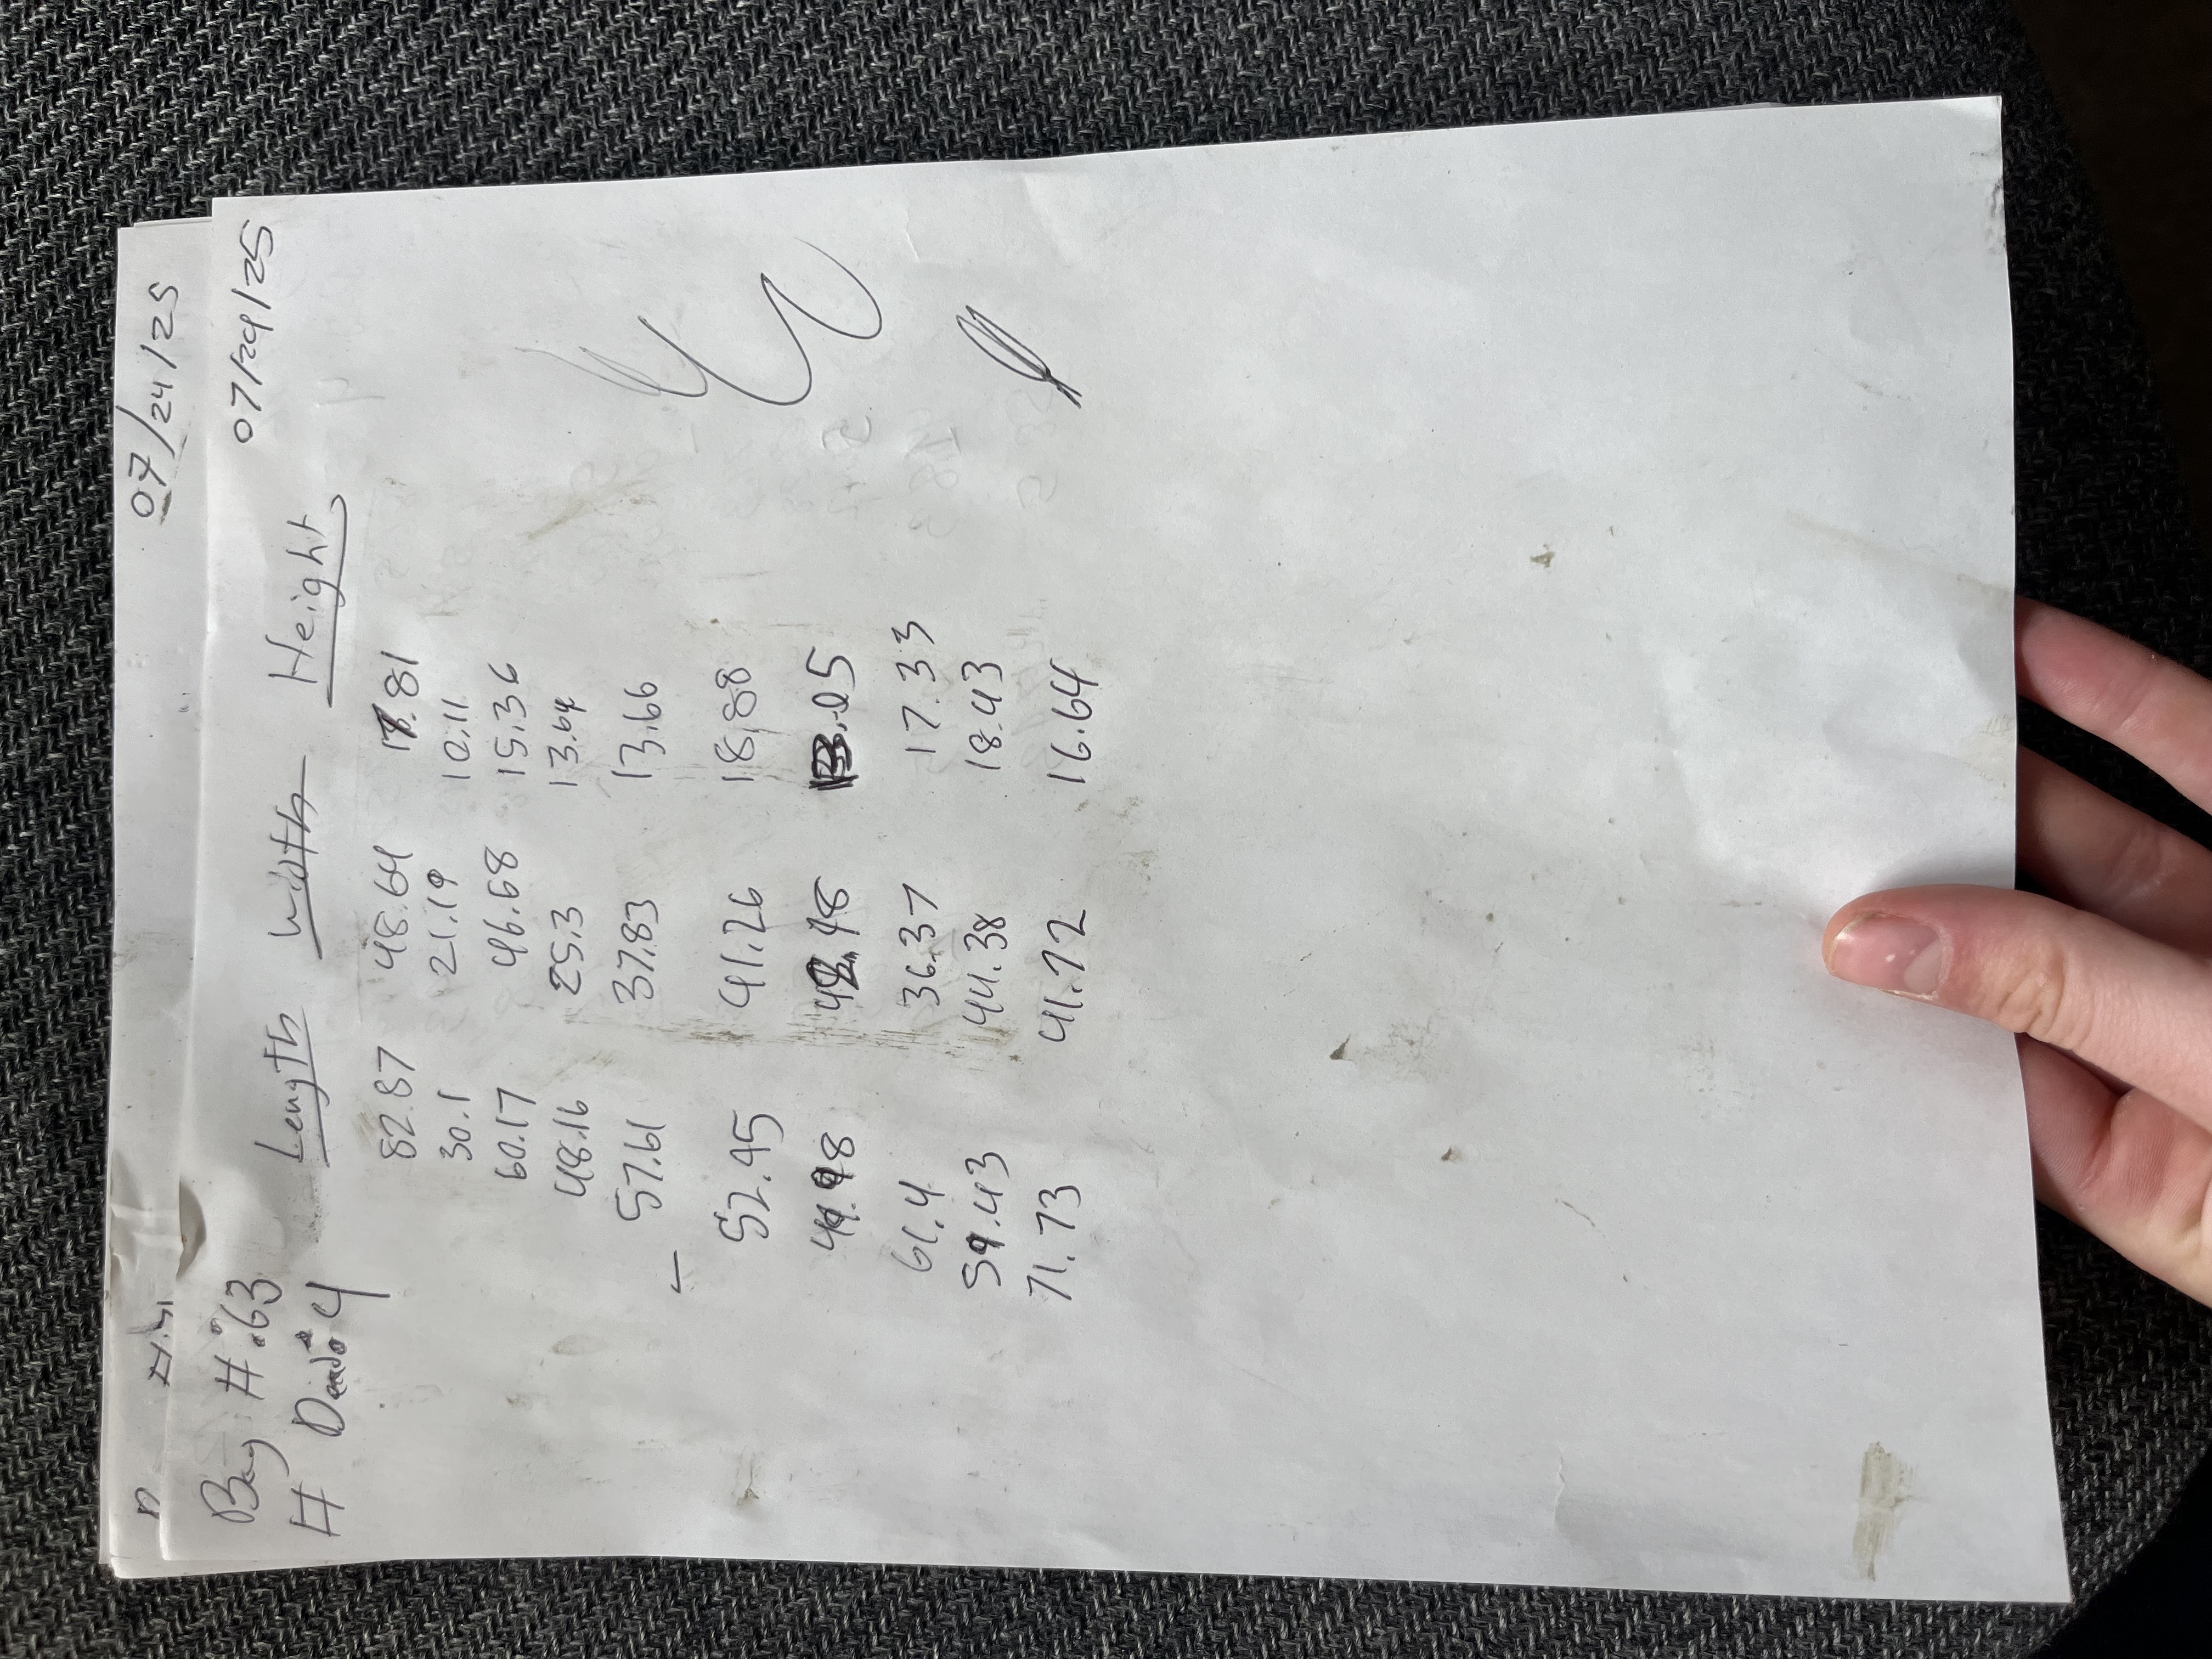 07/24/25
Bag #:63
07/24/25
# Dead:4
Length Width Height
82.87 48.64 18.81
30.1 21.19 10.11
60.17 46.68 15.36
48.16 25.3 13.64
57.61 37.83 13.66
52.45 41.26 18.88
49.98 42.18
61.4 36.37 17.33
59.43 44.38 18.43
71.73 41.72 16.64